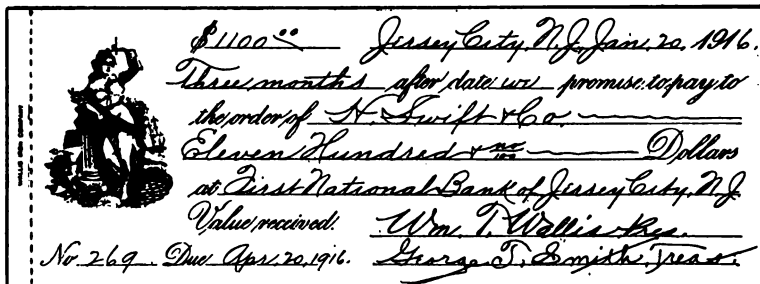 $1100.00 Jersey City, N.J. Jan. 20, 1916.
Three months after date we promise to pay to
the order of N. Swift & Co.
Eleven Hundred & no/100 Dollars
at First National Bank of Jersey City, N.J.
Value received. Wm. T. Wallis Pres.
No 269 Due Apr. 20, 1916. George T. Smith, Treas.